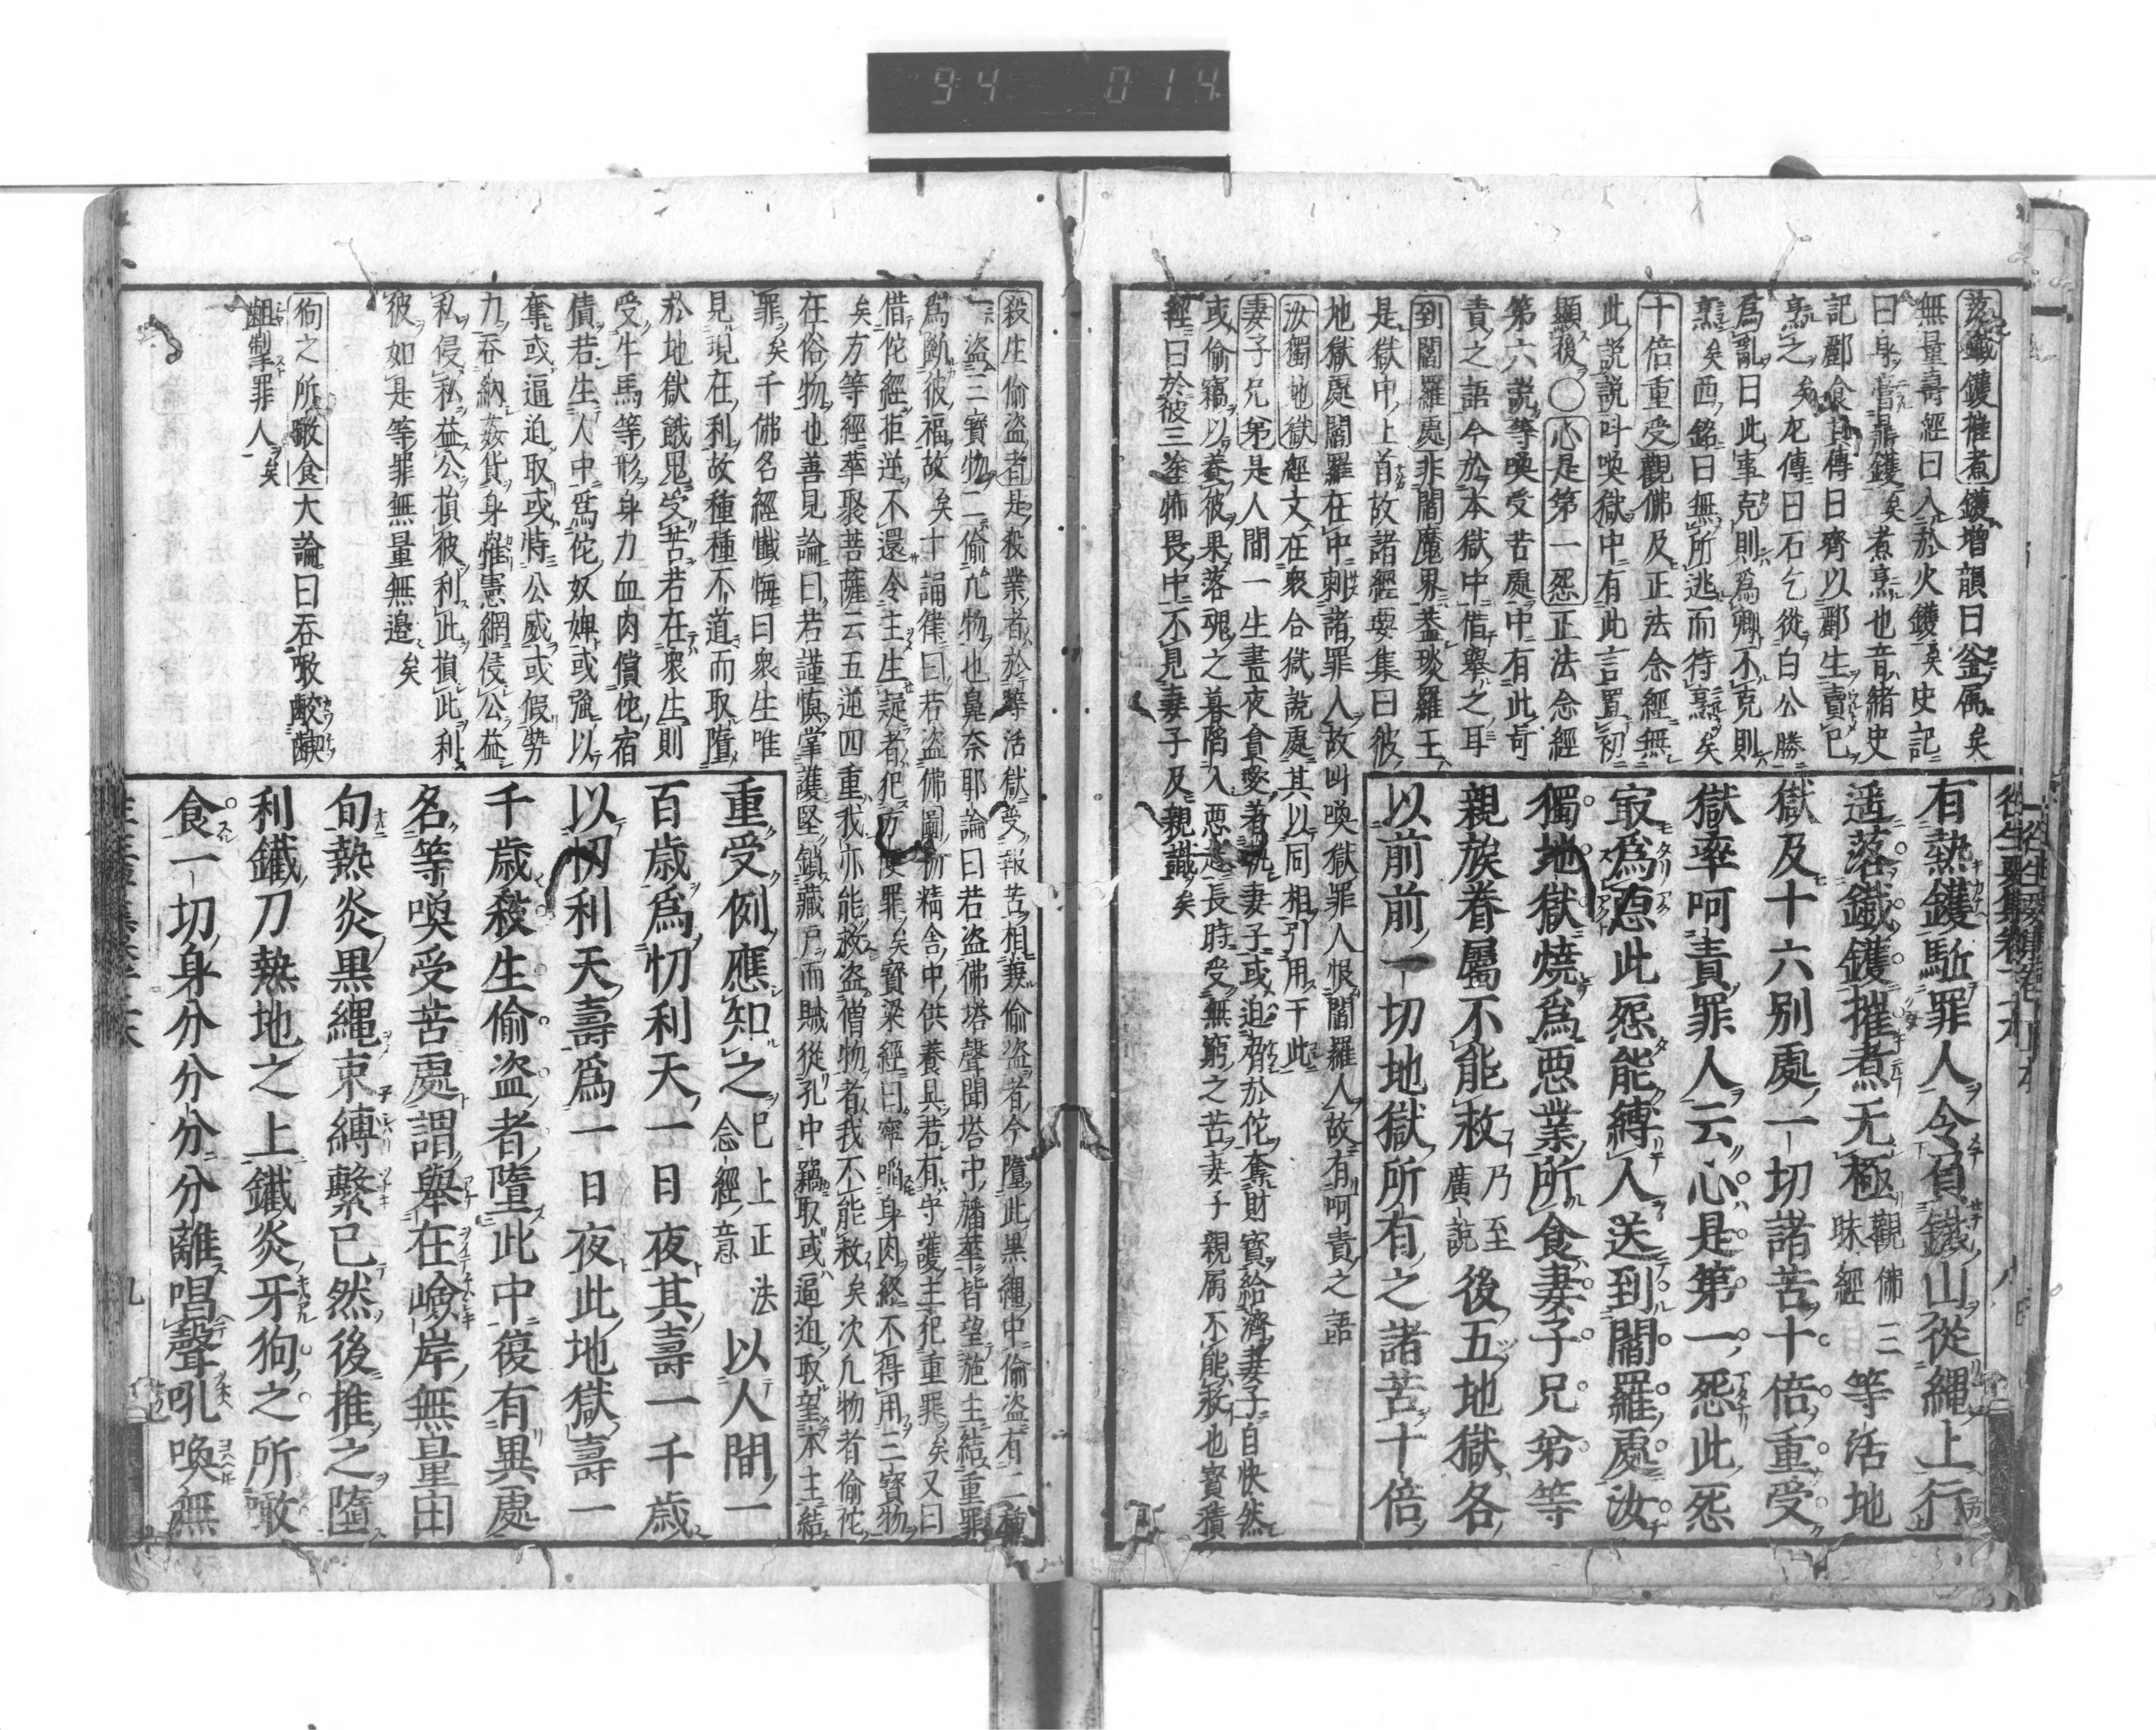 94 014
落鐵鑊摧煮鑊增韻曰釜属矣
無量壽經曰入於火鑊矣史記
曰身嘗鼎鑊矣煮烹也音緒史
記酈食其傳曰齊以酈生賣已
烹之矣左傳曰石乞從白公勝
爲亂曰此事克則爲卿不克則
烹矣西銘曰無所逃而待烹矣
十倍重受觀佛及正法念經無
此説説叫喚獄中有此言置初
顯後〇心是第一怨正法念經
第六説等喚受苦處中有此苛
責之語今於本獄中借舉之耳
到閻羅處非閻魔界蓋琰羅王
是獄中上首故諸經要集曰彼
地獄處閻羅在中刺諸罪人故叫喚獄罪人恨閻羅人故有呵責之語
汝獨地獄經文在衆合獄說處其以同相引用于此
妻子兄弟是人間一生晝夜貪愛者就妻子或迫脅於佗奪財寳給濟妻子自快然
或偷竊以養彼果落魂之暮陷入惡趣長時受無窮之苦妻子親属不能救也寳積
經曰於彼三塗怖畏中不見妻子及親識矣
往生要集卷一本 八
有熱鑊駈罪人令負鐵山從繩上行
遥落鐵鑊摧煮无極觀佛三昧經等活地
獄及十六別處一切諸苦十倍重受
獄率呵責罪人云心是第一怨此怨
㝡爲惡此怨能縛人送到閻羅處汝
獨地獄燒爲惡業所食妻子兄弟等
親族眷屬不能救乃至廣說後五地獄各
以前前一切地獄所有之諸苦十倍
殺生偷盗者是殺業者於等活獄受報苦相兼偷盗者今墮此黒繩中偷盗有二種
一盗三寳物二偷凡物也鼻奈耶論曰若盗佛塔聲聞塔中旛華皆望施主結重罪
爲斷彼福故矣十誦律曰若盗佛圖物精舎中供養具若有守護主犯重罪矣又曰
借佗經拒逆不還令主生疑者犯方便罪矣寳梁經曰寧噉身肉終不得用三寳物
矣方等經華聚菩薩云五逆四重我亦能救盗僧物者我不能救矣次凡物者偷佗
在俗物也善見論曰若謹慎掌護堅鎖藏戸而賊從孔中竊取或逼迫取望本主結
罪矣千佛名經懺悔曰衆生唯
見現在利故種種不道而取墮
於地獄餓鬼受苦若在衆生則
受牛馬等形身力血肉償佗宿
債若生人中爲佗奴婢或強以
奪或逼迫取或恃公威或假势
力吞納姦貨身罹憲網侵公益
私侵私益公損彼利此損此利
彼如是等罪無量無邊矣
狗之所噉食大論曰吞噉齩齧
齟掣罪人矣
重受例應知之已上正法念經意以人間一
百歳爲忉利天一日夜其壽一千歳
以忉利天壽爲一日夜此地獄壽一
千歳殺生偷盗者墮此中復有異處
名等喚受苦處謂舉在嶮岸無量由
旬熱炎黒繩束縛繫已然後推之墮
利鐵刀熱地之上鐵炎牙狗之所噉
食一切身分分分分離唱聲吼喚無
九